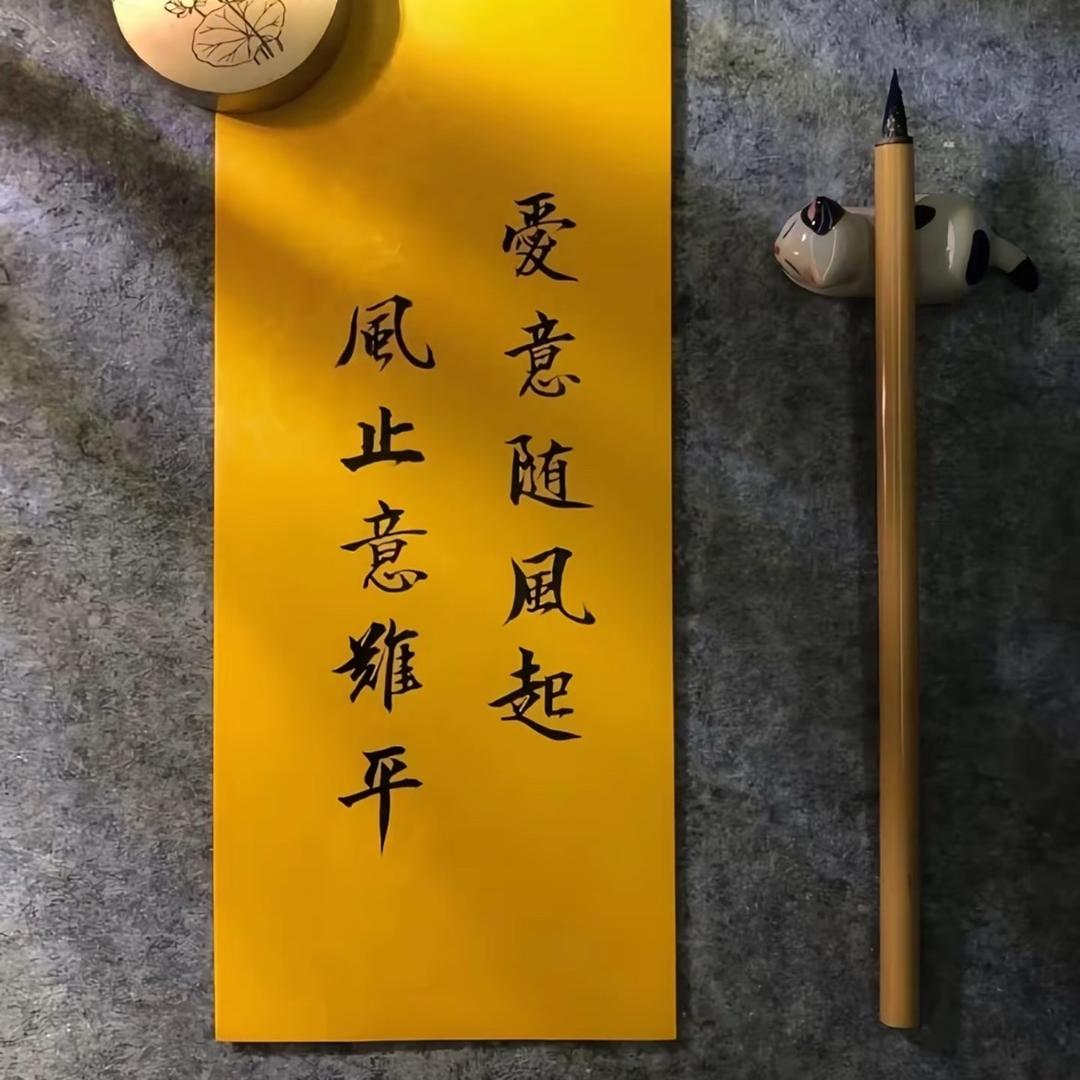 愛意随風起
風止意難平